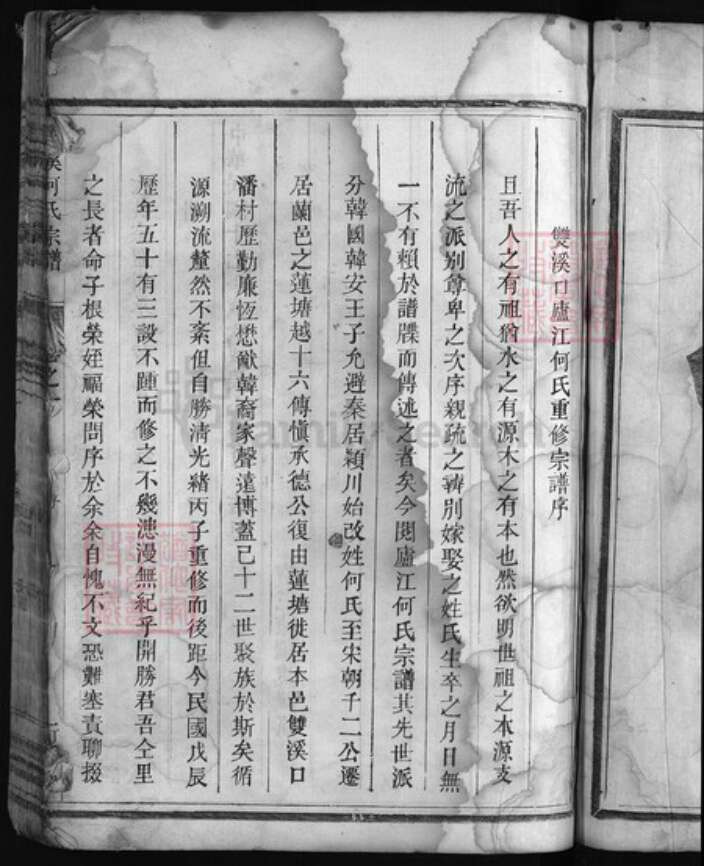 雙溪口廬江何氏重修宗譜序
且吾人之有祖猶水之有源木之有本也然欲明世祖之本源支
流之派別尊卑之次序親疏之辨別嫁娶之姓氏生卒之月日無
一不有賴於譜牒而傳述之者矣今閱廬江何氏宗譜其先世派
分韓國韓安王子允避秦居潁川始改姓何氏至宋朝千二公遷
居蘭邑之蓮塘越十六傳慎承德公復由蓮塘徙居本邑雙溪口
潘村歷勤廉恆懋猷韓裔家聲遠博蓋已十二世聚族於斯矣循
源溯流釐然不紊但自勝清光緒丙子重修而後距今民國戊辰
歷年五十有三設不踵而修之不幾漶漫無紀乎開勝君吾仝里
之長者命子根榮姪福榮問序於余余自愧不文恐難塞責聊掇
溪何氏宗譜